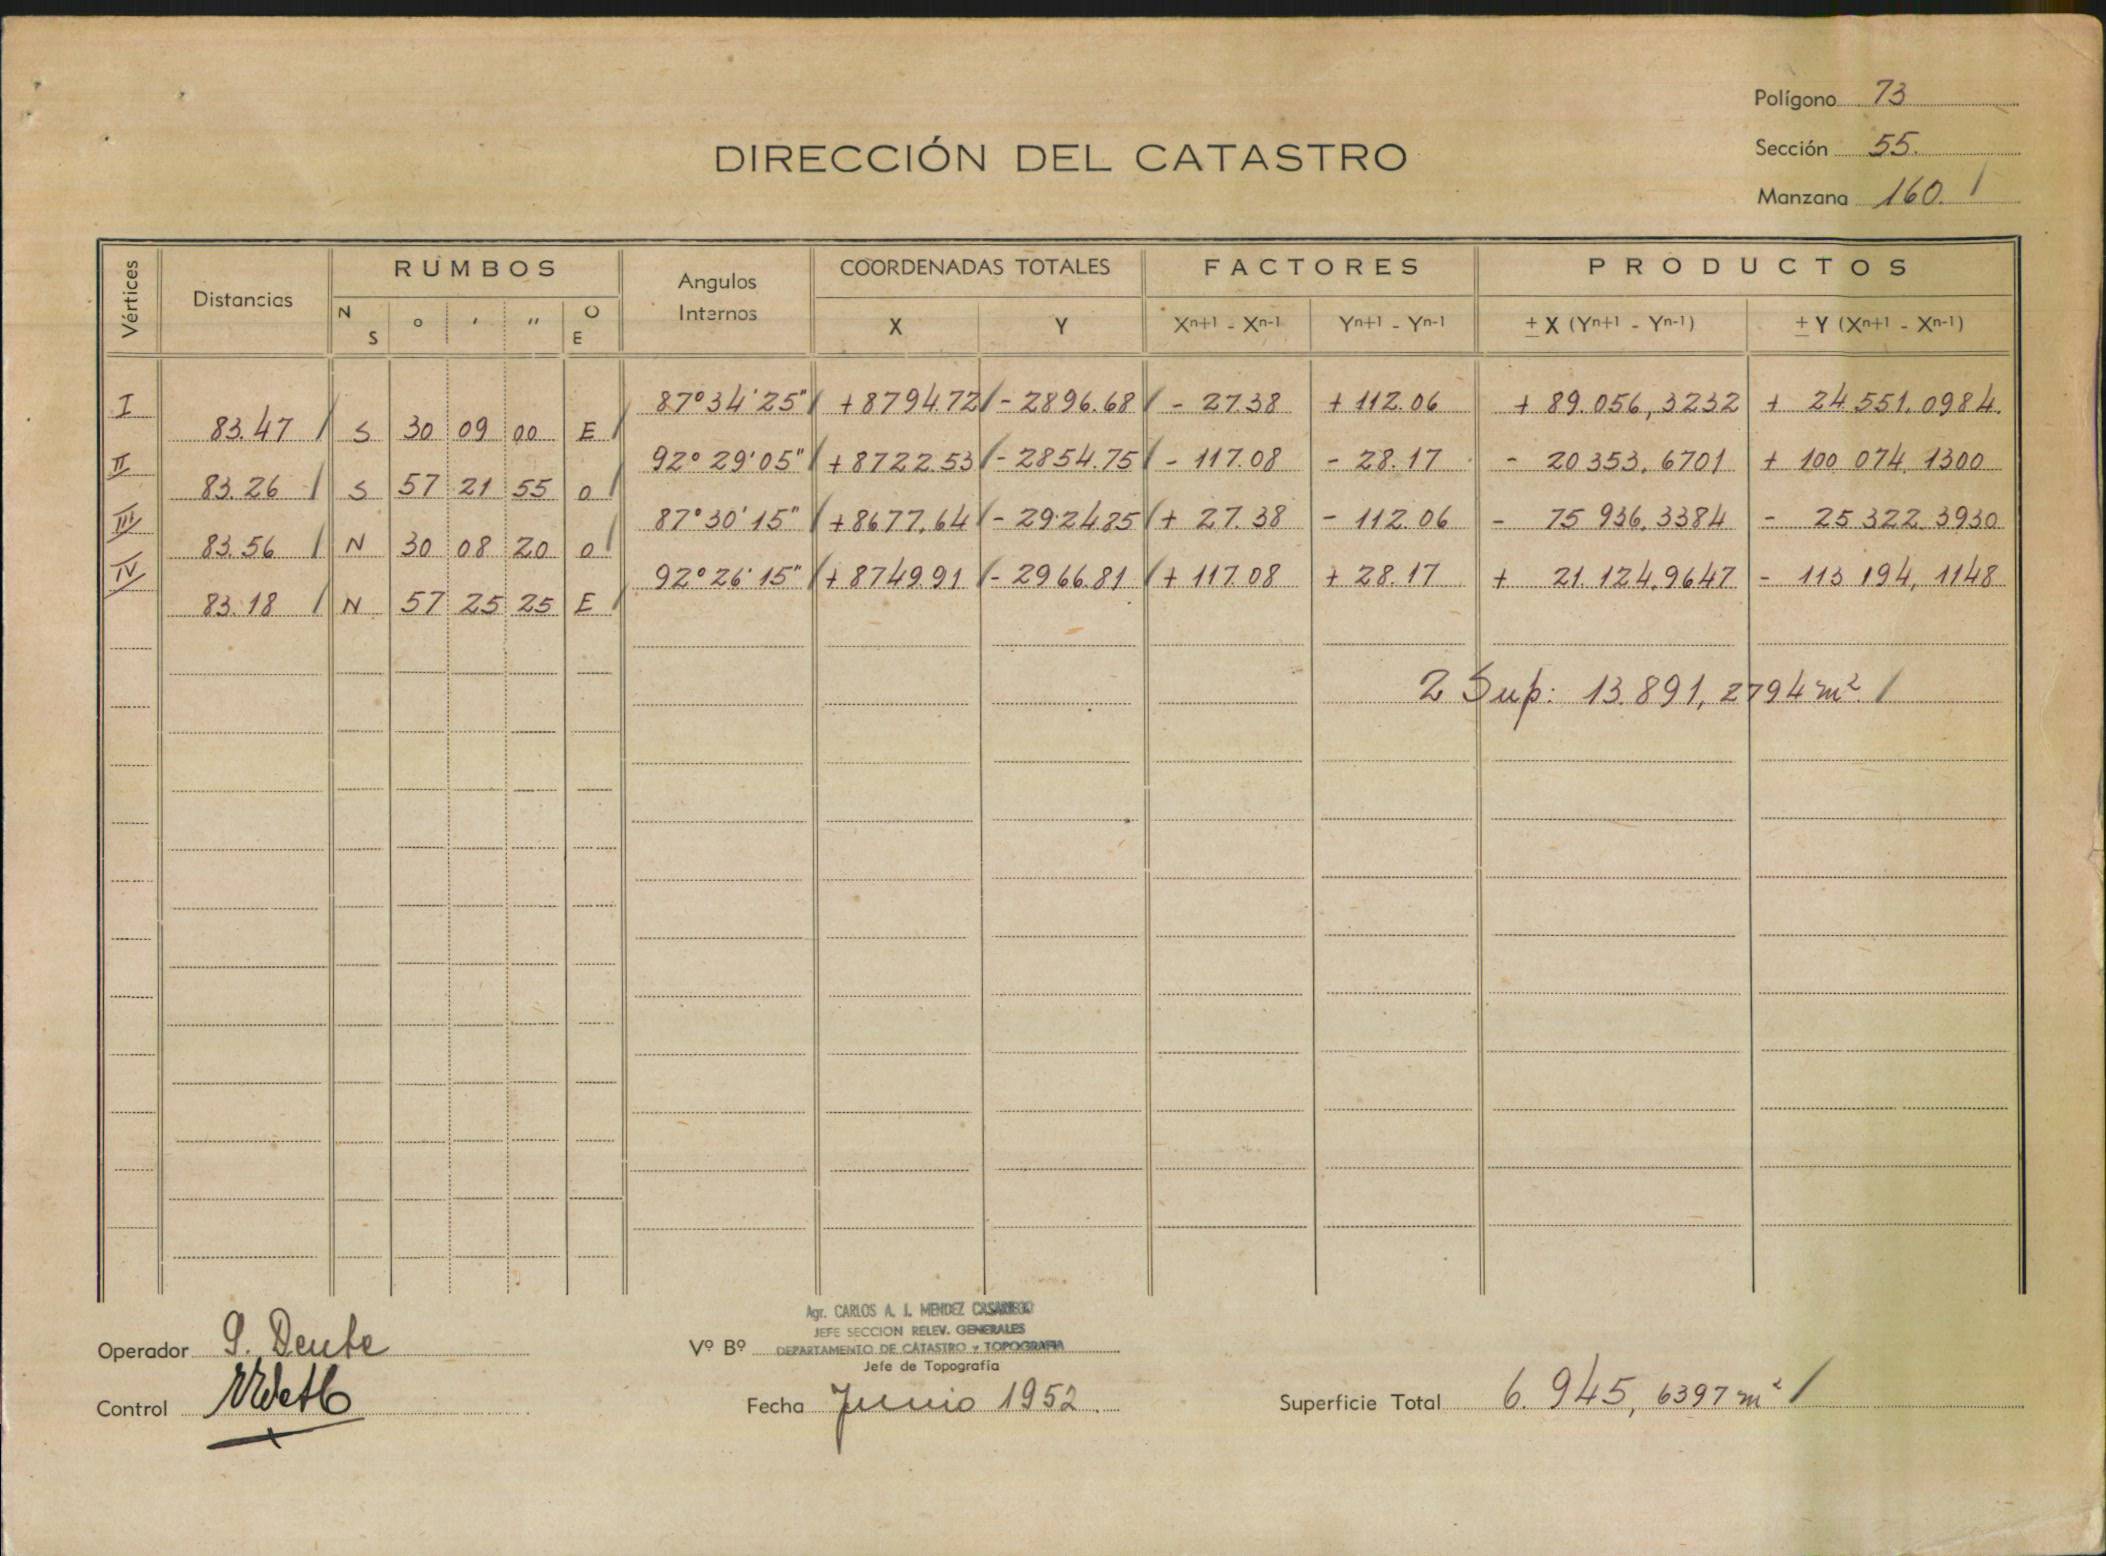 Polígono 73
DIRECCIÓN DEL CATASTRO
Sección 55.
Manzana 160. /
Vértices Distancias RUMBOS Angulos Internos COORDENADAS TOTALES FACTORES PRODUCTOS
N S ° ' " O E X Y Xn+1 - Xn-1 Yn+1 - Yn-1 ± X (Yn+1 - Yn-1) ± Y (Xn+1 - Xn-1)
I 87°34'25" / +8794.72 / - 2896.68 / - 27.38 + 112.06 + 89.056,3232 + 24.551.0984.
83.47 / S 30 09 00 E /
II 92° 29'05" / +8722.53 / - 2854.75 / - 117.08 - 28.17 - 20353.6701 + 100 074.1300
83.26 / S 57 21 55 O /
III 87°30'15" / +8677.64 / - 2924.85 / + 27.38 - 112.06 - 75 936.3384 - 25 322.3930
83.56 / N 30 08 20 O /
IV 92°26'15" / +8749.91 / - 2966.81 / + 117.08 + 28.17 + 21.124.9647 - 113 194,1148
83.18 / N 57 25 25 E /
2 Sup: 13.891,2794 m² /
Agr. CARLOS A. I. MENDEZ CASARIEGO
JEFE SECCION RELEV. GENERALES
Operador S. Dente Vº Bº DEPARTAMENTO DE CATASTRO y TOPOGRAFIA
Jefe de Topografía
Control Fecha Junio 1952. Superficie Total 6.945,6397 m² /